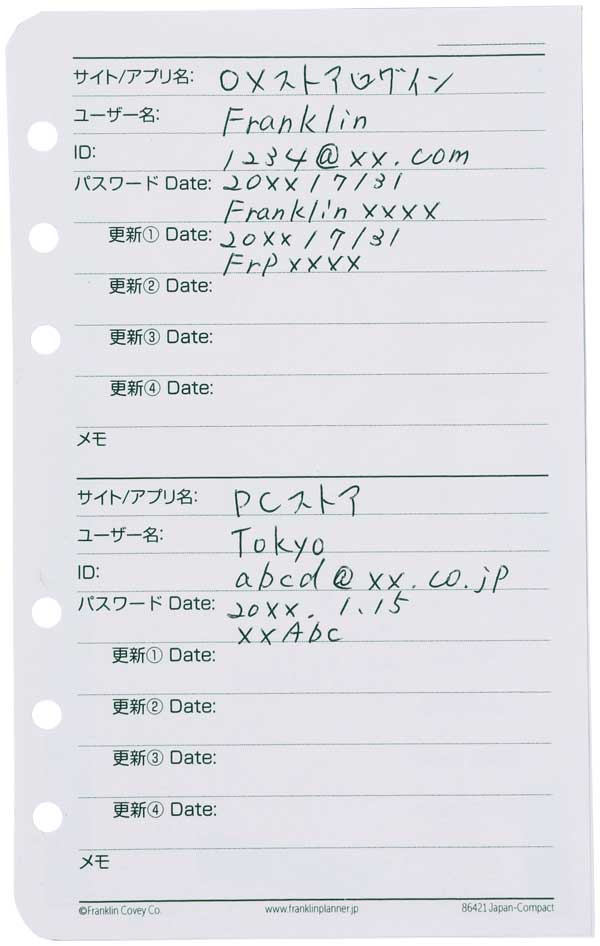 サイト/アプリ名: OXストアログイン
ユーザー名: Franklin
ID: 1234@xx.com
パスワード Date: 20xx/7/31
Franklin xxxx
更新① Date: 20xx/7/31
Frp xxxx
更新② Date:
更新③ Date:
更新④ Date:
メモ
サイト/アプリ名: PCストア
ユーザー名: Tokyo
ID: abcd@xx.co.jp
パスワード Date: 20xx.1.15
xxAbc
更新① Date:
更新② Date:
更新③ Date:
更新④ Date:
メモ
©Franklin Covey Co. www.franklinplanner.jp 86421 Japan-Compact